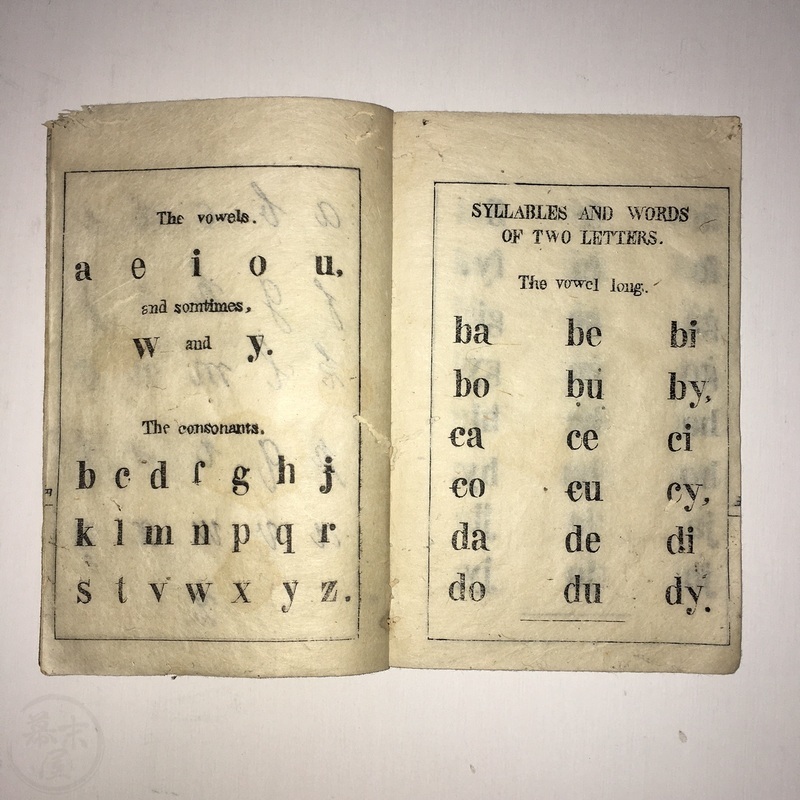 The vowels.
a e i o u,
and somtimes,
w and y.
The consonants.
b c d f g h j
k l m n p q r
s t v w x y z.
SYLLABLES AND WORDS
OF TWO LETTERS.
The vowel long.
ba be bi
bo bu by,
ca ce ci
co cu cy,
da de di
do du dy.
幕末屋